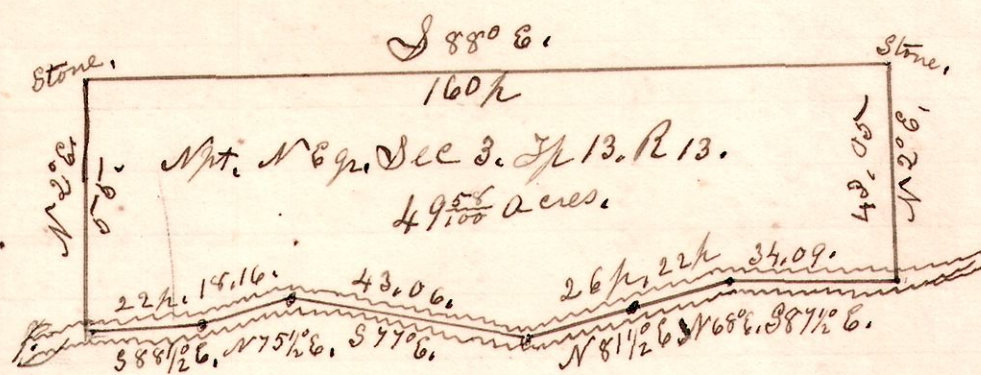 S 88° E.
Stone.
Stone.
160 p
N 2° E.
55.
Npt. N E qr. Sec 3. Tp 13. R 13.
49 58/100 acres.
43.05
N 2° E.
22p. 18.16. 43.06. 26p. 22p 34.09.
S 88 1/2 E. N 75 1/2 E. S 77° E. N 81 1/2 E N 68° E. S 87 1/2 E.